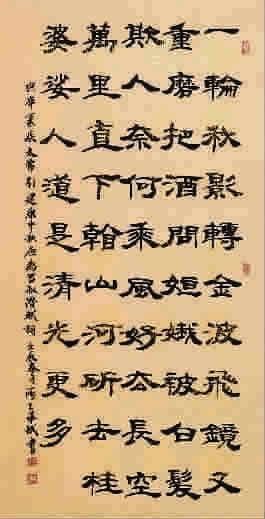 一輪秋影轉金波飛鏡又
重磨把酒問姮娥被白髮
欺人奈何乘風好去長空
萬里直下看山河斫去桂
婆娑人道是清光更多
太常引建康中秋夜為呂叔潛賦詞壬辰春月書